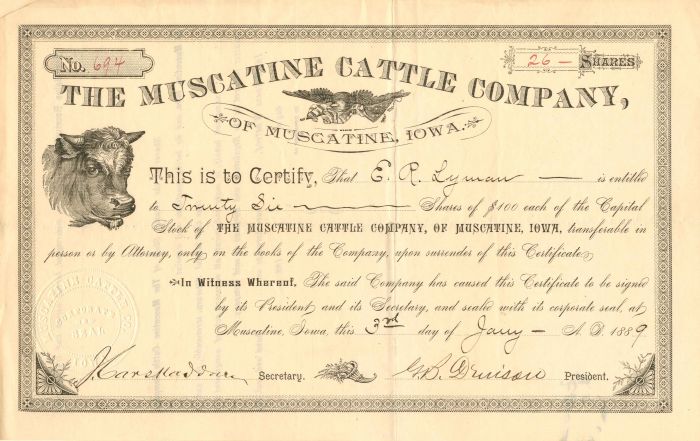 No. 694
26 — SHARES
THE MUSCATINE CATTLE COMPANY,
OF MUSCATINE, IOWA.
This is to Certify, That E. R. Lyman — is entitled
to Twenty Six — Shares of $100 each of the Capital
Stock of THE MUSCATINE CATTLE COMPANY, OF MUSCATINE, IOWA, transferable in
person or by Attorney, only on the books of the Company, upon surrender of this Certificate.
In Witness Whereof, The said Company has caused this Certificate to be signed
by its President and its Secretary, and sealed with its corporate seal, at
Muscatine, Iowa, this 3rd day of Jany — A. D. 1889
MUSCATINE CATTLE CO.
CORPORATE
SEAL
Secretary.
G. B. Denison President.